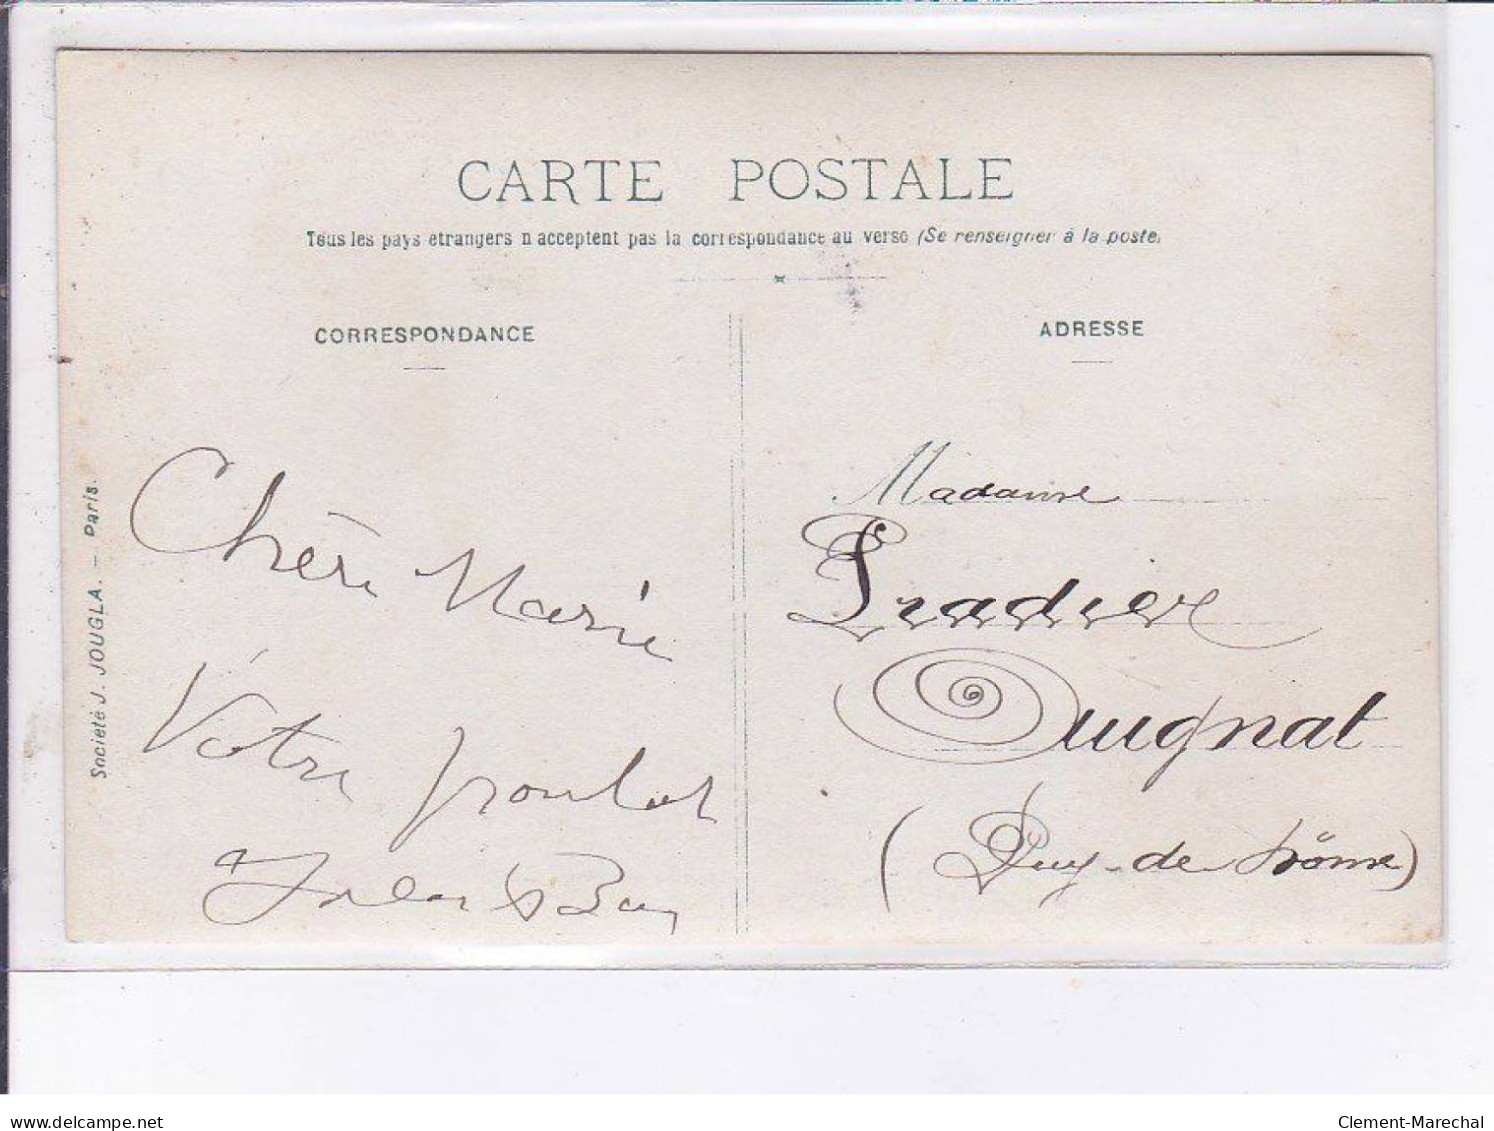 CARTE POSTALE
Tous les pays etrangers n'acceptent pas la correspondance au verso (Se renseigner à la poste)
CORRESPONDANCE
ADRESSE
Société J. JOUGLA. — Paris.
Chère Marie
Votre
Madame
Pradier
Auugnat
(Puy-de-Dôme)
delcampe.net
Clement-Marechal